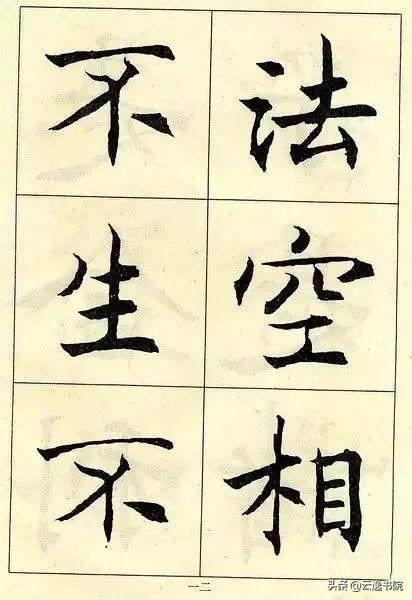 法空相
不生不
一二
头条 @云逸书院